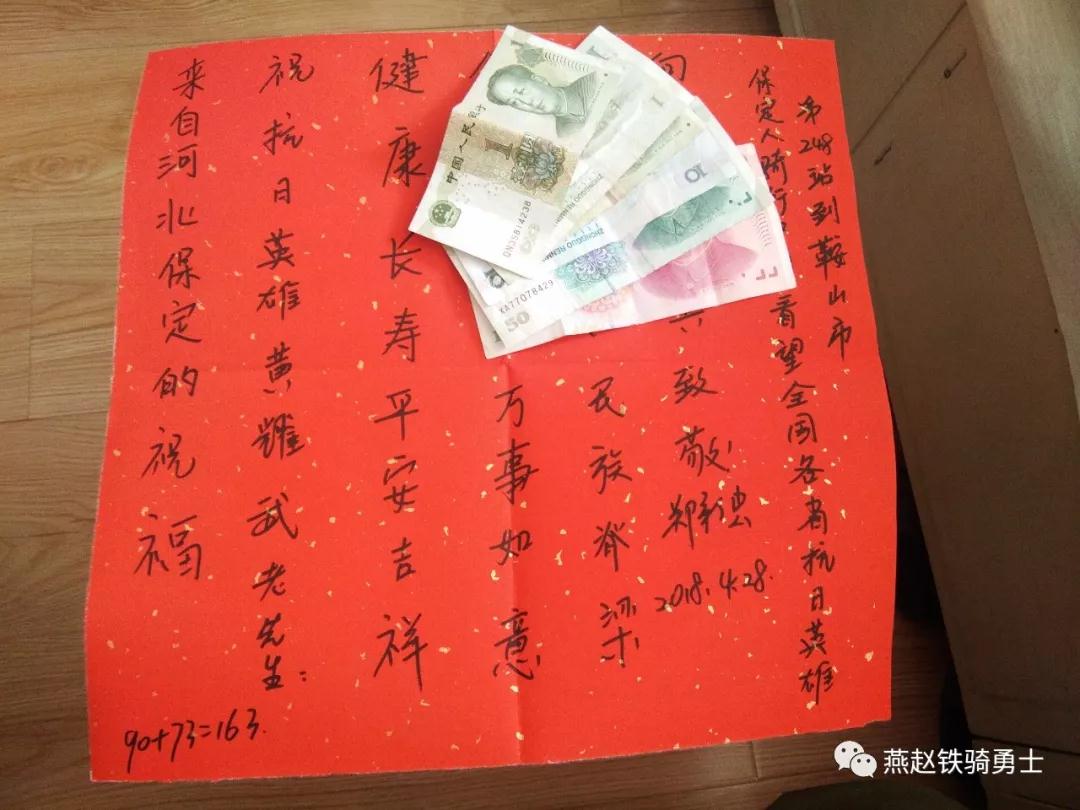 来自河北保定的祝福
祝抗日英雄黄耀武老先生:
健康长寿平安吉祥
万事如意
民族脊梁
致敬
郑新忠
2018.4.28.
保定人骑行
看望全国各省抗日英雄
第248站到鞍山市
90+73=163.
1
中国人民银行
1
DN35814238
1
10
ZHONGGUO RENMIN
XA77078429
50
燕赵铁骑勇士